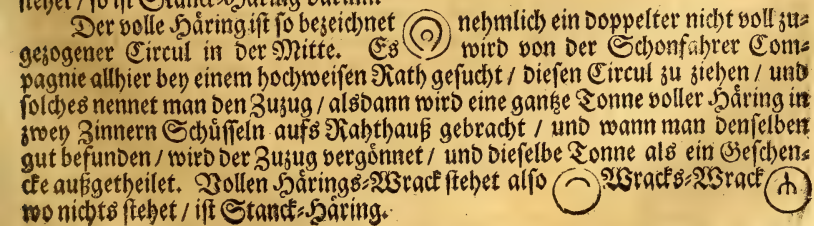 stehet / so ist Stanck-Häring darinn.
Der volle Häring ist so bezeichnet nehmlich ein doppelter nicht voll zu-
gezogener Circul in der Mitte. Es wird von der Schonfahrer Com-
pagnie allhier bey einem hochweisen Rath gesucht / diesen Circul zu ziehen / und
solches nennet man den Zuzug / alsdann wird eine gantze Tonne voller Häring in
zwey Zinnern Schüsseln aufs Rahthauß gebracht / und wann man denselben
gut befunden / wird der Zuzug vergönnet / und dieselbe Tonne als ein Geschen-
cke außgetheilet. Vollen Härings-Wrack stehet also Wracks-Wrack
wo nichts stehet / ist Stanck-Häring.